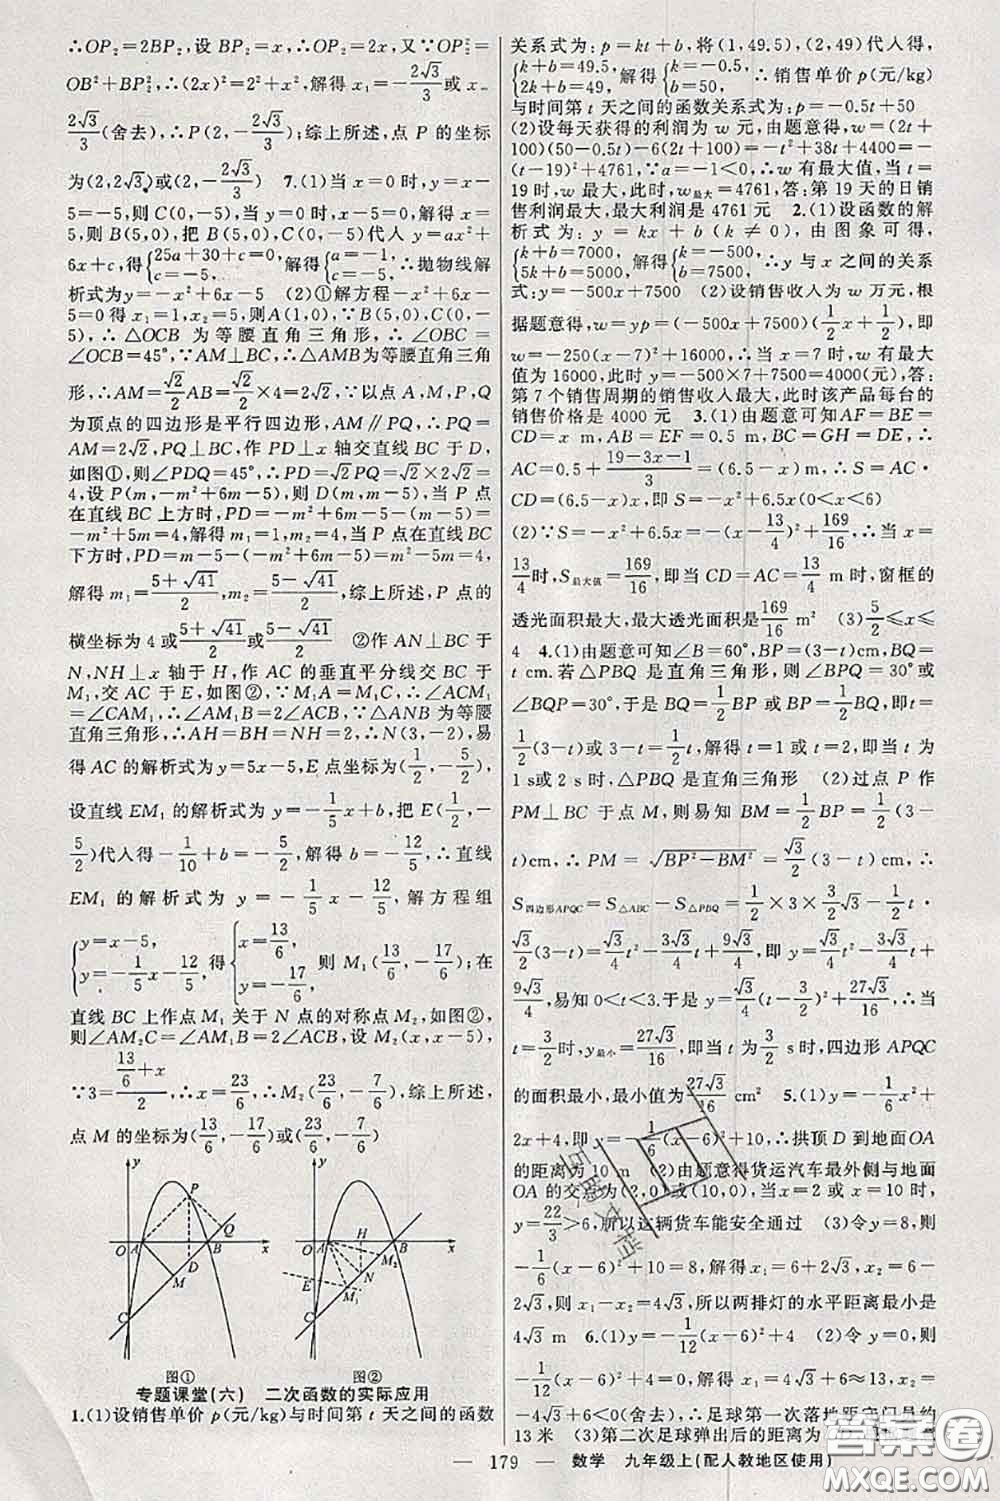 ∴OP₂=2BP₂,设 BP₂=x,∴OP₂=2x,又∵OP₂²=
OB²+BP₂²,∴(2x)²=2²+x²,解得 x₁=-2√3/3或 x₂=
2√3/3(舍去),∴P(2,-2√3/3);综上所述,点 P 的坐标
为(2,2√3)或(2,-2√3/3) 7.(1)当 x=0时,y=x-
5=-5,则C(0,-5),当 y=0 时,x-5=0,解得 x=
5,则 B(5,0),把 B(5,0),C(0,-5)代人 y=ax²+
6x+c,得{25a+30+c=0, c=-5, 解得{a=-1, c=-5, ∴抛物线解
析式为y=-x²+6x-5 (2)①解方程-x²+6x-
5=0得 x₁=1,x₂=5,则A(1,0),∵B(5,0),C(0,-
5),∴△OCB 为等腰直角三角形,∴∠OBC=
∠OCB=45°,∵AM⊥BC,∴△AMB为等腰直角三角
形,∴AM=√2/2AB=√2/2×4=2√2,∵以点 A,M,P,Q
为顶点的四边形是平行四边形,AM∥PQ,∴PQ=
AM=2√2,PQ⊥BC,作 PD⊥x 轴交直线BC 于 D,
如图①,则∠PDQ=45°,∴PD=√2PQ=√2×2√2=
4,设 P(m,-m²+6m-5),则 D(m,m-5),当 P点
在直线BC 上方时,PD=-m²+6m-5-(m-5)=
-m²+5m=4,解得 m₁=1,m₂=4,当 P点在直线BC
下方时,PD=m-5-(-m²+6m-5)=m²-5m=4,
解得 m₁=5+√41/2,m₂=5-√41/2,综上所述,P点的
横坐标为 4 或5+√41/2或5-√41/2 ②作 AN⊥BC 于
N,NH⊥x 轴于 H,作 AC 的垂直平分线交 BC 于
M₁,交 AC 于 E,如图②,∵M₁A=M₁C,∴∠ACM₁
=∠CAM₁,∴∠AM₁B=2∠ACB,∵△ANB 为等腰
直角三角形,∴AH=BH=NH=2,∴N(3,-2),易
得 AC 的解析式为 y=5x-5,E 点坐标为(1/2,-5/2),
设直线 EM₁ 的解析式为 y=-1/5x+b,把 E(1/2,-
5/2)代人得-1/10+b=-5/2,解得 b=-12/5,∴直线
EM₁ 的解析式为 y=-1/5x-12/5,解方程组
{y=x-5, y=-1/5x-12/5, 得{x=13/6, y=-17/6, 则 M₁(13/6,-17/6);在
直线 BC 上作点 M₁ 关于 N 点的对称点 M₂,如图②,
则∠AM₂C=∠AM₁B=2∠ACB,设 M₂(x,x-5),
∵3=(13/6+x)/2,∴x=23/6,∴M₂(23/6,-7/6),综上所述,
点 M 的坐标为(13/6,-17/6)或(23/6,-7/6)
y P Q O A B x M C
图①
y H O A B x M₂ N E M₁ C
图②
专题课堂(六) 二次函数的实际应用
1.(1)设销售单价 p(元/kg)与时间第 t 天之间的函数
关系式为:p=kt+b,将(1,49.5),(2,49)代人得,
{k+b=49.5, 2k+b=49, 解得{k=-0.5, b=50, ∴销售单价 p(元/kg)
与时间第 t 天之间的函数关系式为:p=-0.5t+50
(2)设每天获得的利润为 w 元,由题意得,w=(2t+
100)(50-0.5t)-6(2t+100)=-t²+38t+4400=-
(t-19)²+4761,∵a=-1<0,∴w 有最大值,当 t=
19时,w 最大,此时,w最大=4761,答:第 19 天的日销
售利润最大,最大利润是 4761 元 2.(1)设函数的解
析式为:y=kx+b(k≠0),由图象可得,
{k+b=7000, 5k+b=5000, 解得{k=-500, b=7500, ∴y 与 x 之间的关系
式:y=-500x+7500 (2)设销售收入为 w 万元,根
据题意得,w=yp=(-500x+7500)(1/2x+1/2),即
w=-250(x-7)²+16000,∴当 x=7 时,w 有最大
值为 16000,此时 y=-500×7+7500=4000(元),答:
第 7 个销售周期的销售收入最大,此时该产品每台的
销售价格是 4000 元 3.(1)由题意可知AF=BE=
CD=x m,AB=EF=0.5 m,BC=GH=DE,∴
AC=0.5+19-3x-1/3=(6.5-x)m,∴S=AC·
CD=(6.5-x)x,即 S=-x²+6.5x(0<x<6)
(2)∵S=-x²+6.5x=-(x-13/4)²+169/16,∴当 x=
13/4时,S最大值=169/16,即当 CD=AC=13/4 m时,窗框的
透光面积最大,最大透光面积是169/16 m² (3)5/2≤x≤
4 4.(1)由题意可知∠B=60°,BP=(3-t)cm,BQ=
t cm.若△PBQ 是直角三角形,则∠BPQ=30°或
∠BQP=30°,于是 BQ=1/2BP 或 BP=1/2BQ,即t=
1/2(3-t)或 3-t=1/2t,解得 t=1 或 t=2,即当 t 为
1 s或 2 s 时,△PBQ 是直角三角形 (2)过点 P 作
PM⊥BC 于点 M,则易知 BM=1/2BP=1/2(3-
t)cm,∴PM=√BP²-BM²=√3/2(3-t)cm,∴
S四边形APQC=S△ABC-S△PBQ=1/2×3×3/2√3-1/2t·
√3/2(3-t)=√3/4t²-3√3/4t+9√3/4,即 y=√3/4t²-3√3/4t+
9√3/4,易知 0<t<3.于是 y=√3/4(t-3/2)²+27√3/16,∴当
t=3/2时,y最小=27√3/16,即当 t 为3/2 s 时,四边形 APQC
的面积最小,最小值为27√3/16 cm² 5.(1)y=-1/6x²+
2x+4,即 y=-1/6(x-6)²+10,∴拱顶 D 到地面OA
的距离为 10 m (2)由题意得货运汽车最外侧与地面
OA 的交点为(2,0)或(10,0),当 x=2 或 x=10 时,
y=22/3>6,所以这辆货车能安全通过 (3)令 y=8,则
-1/6(x-6)²+10=8,解得 x₁=6+2√3,x₂=6-
2√3,则 x₁-x₂=4√3,所以两排灯的水平距离最小是
4√3 m 6.(1)y=-1/12(x-6)²+4 (2)令 y=0,则
-1/12(x-6)²+4=0,解得 x₁=4√3+6≈13,x₂=
-4√3+6<0(舍去),∴足球第一次落地距守门员约
13 米 (3)第二次足球弹出后的距离为
— 179 — 数学 九年级上(配人教地区使用)
答案卷
MXQE.COM